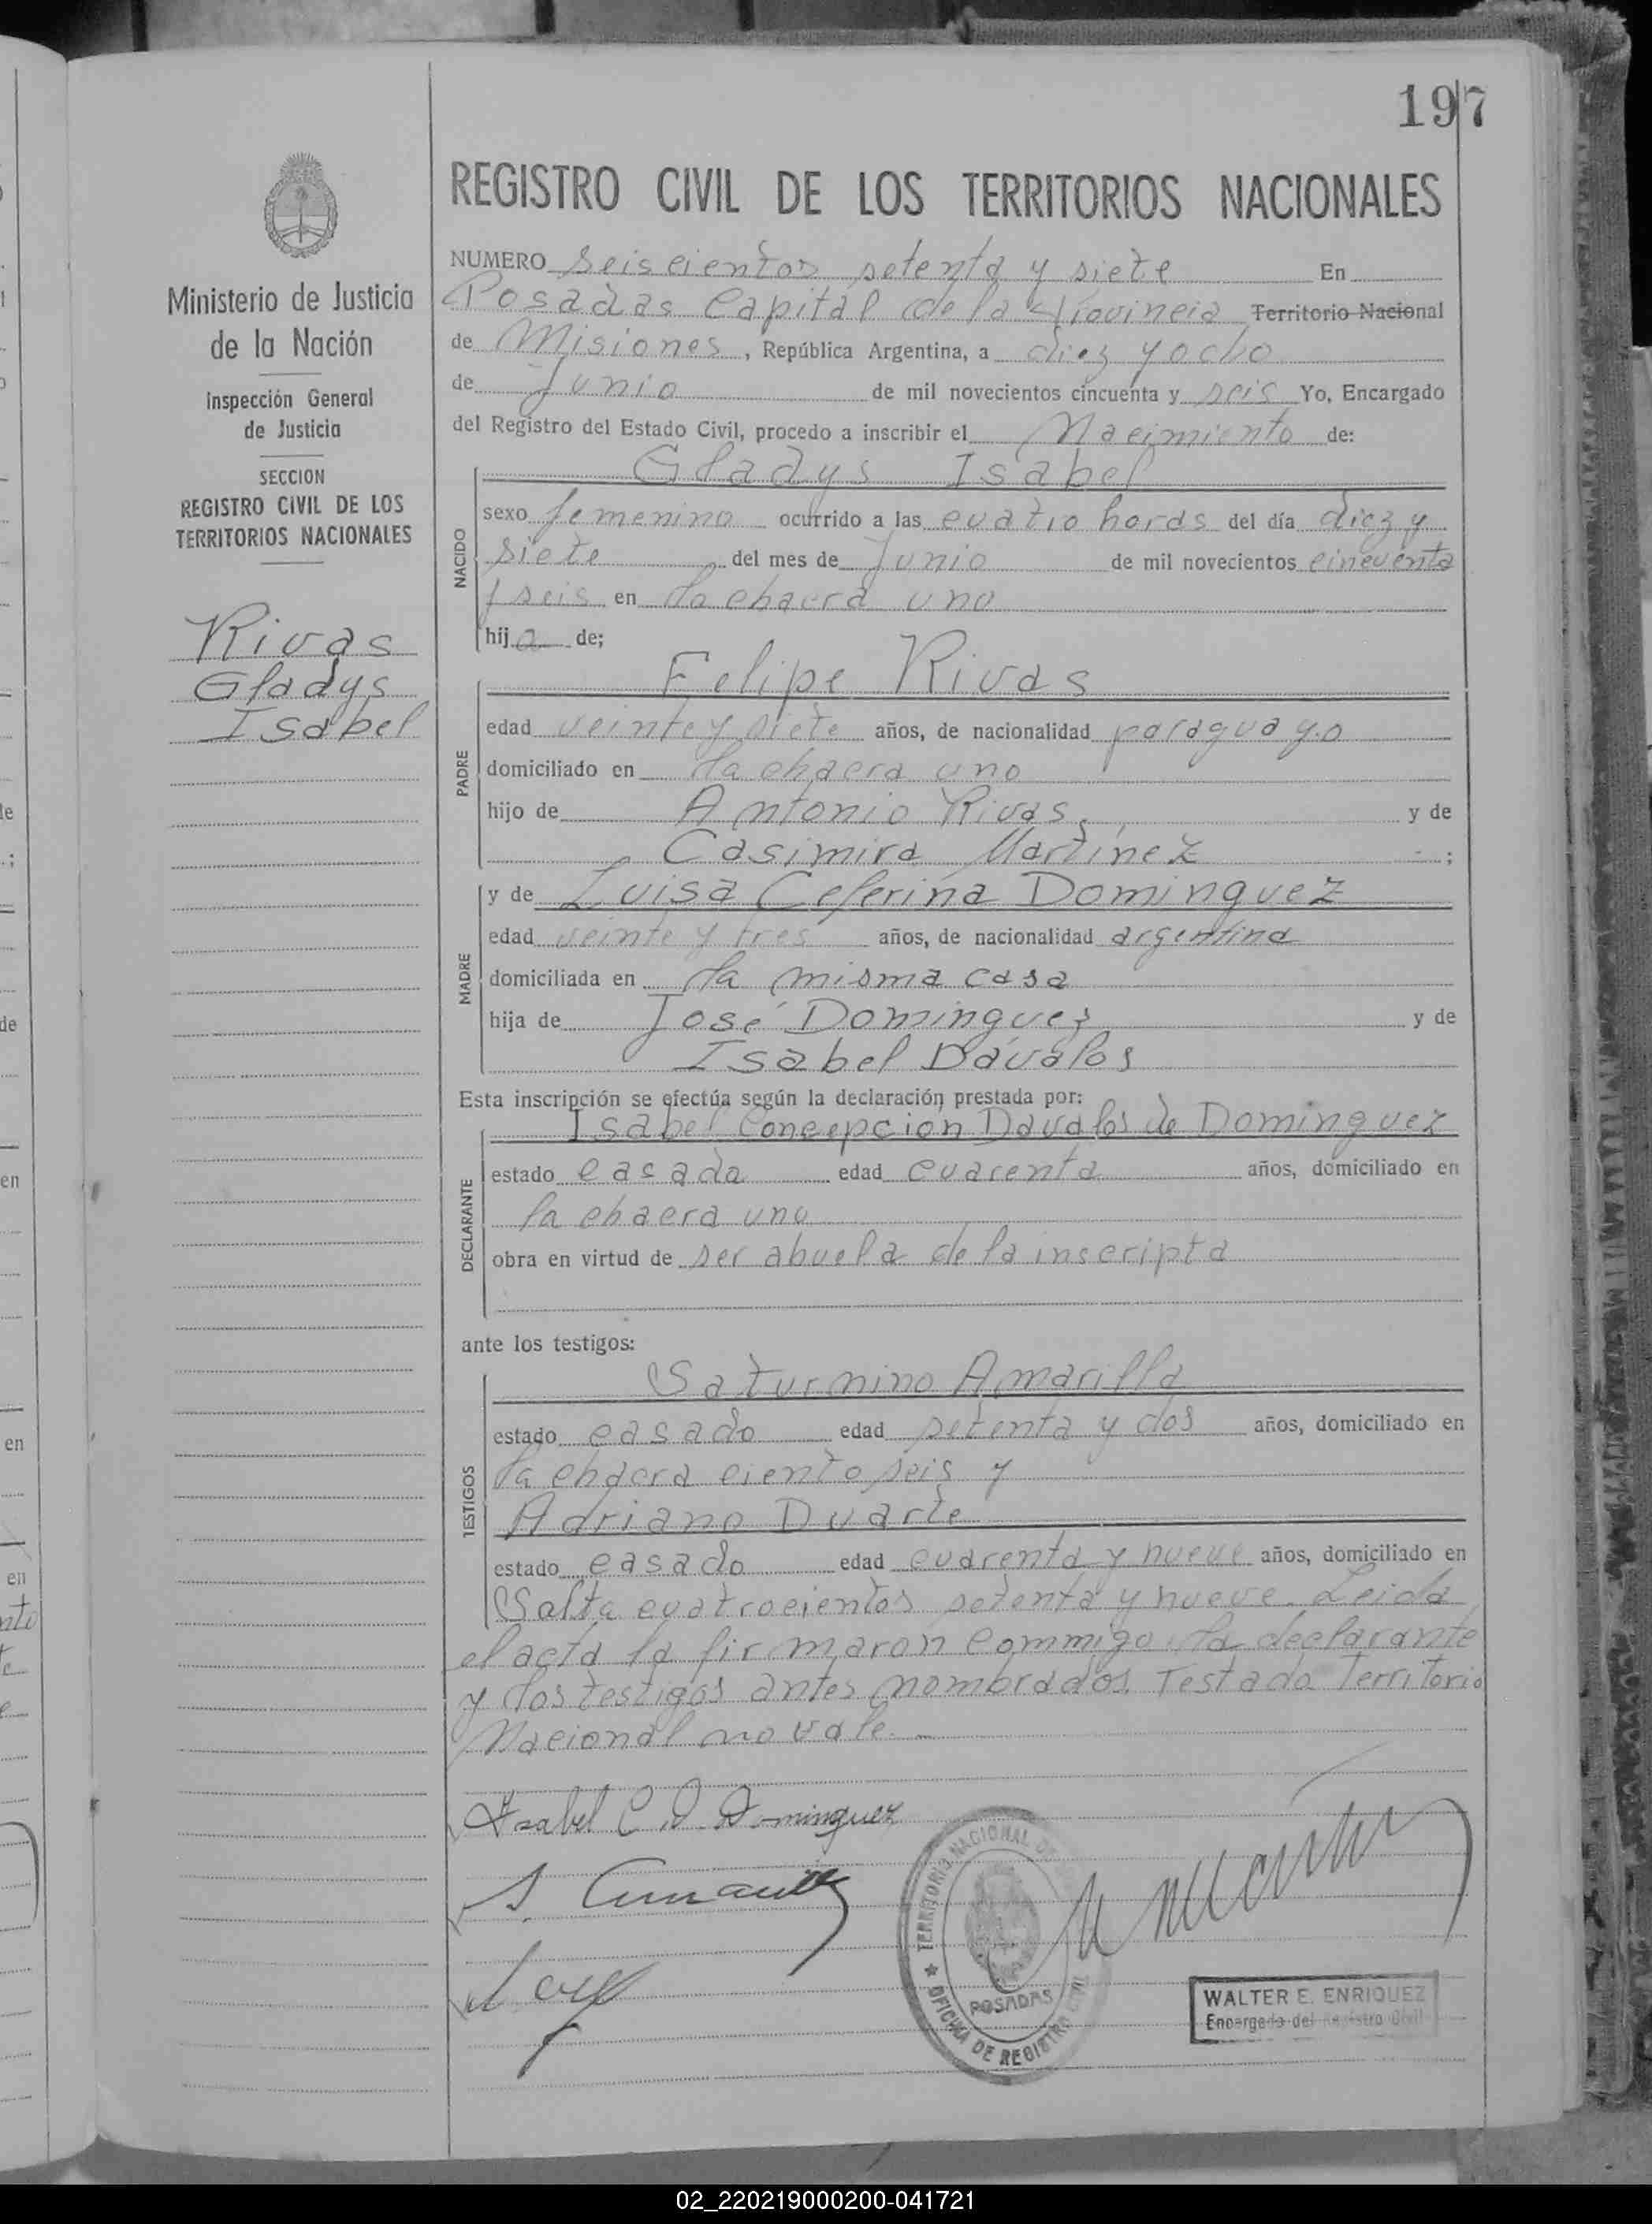 197
REGISTRO CIVIL DE LOS TERRITORIOS NACIONALES
Ministerio de Justicia
de la Nación
Inspección General
de Justicia
SECCION
REGISTRO CIVIL DE LOS
TERRITORIOS NACIONALES
Rivas
Gladys
Isabel
NUMERO Seiscientos setenta y siete En
Posadas Capital de la Provincia Territorio Nacional
de Misiones, República Argentina, a diez y ocho
de Junio de mil novecientos cincuenta y seis Yo, Encargado
del Registro del Estado Civil, procedo a inscribir el Nacimiento de:
NACIDO
Gladys Isabel
sexo femenino ocurrido a las cuatro horas del día diez y
siete del mes de Junio de mil novecientos cincuenta
y seis en la chacra uno
hija de;
PADRE
Felipe Rivas
edad veinte y siete años, de nacionalidad paraguayo
domiciliado en la chacra uno
hijo de Antonio Rivas y de
Casimira Martinez ;
MADRE
y de Luisa Ceferina Dominguez
edad veinte y tres años, de nacionalidad argentina
domiciliada en la misma casa
hija de José Dominguez y de
Isabel Dávalos
Esta inscripción se efectúa según la declaración prestada por:
DECLARANTE
Isabel Concepcion Davalos de Dominguez
estado casada edad cuarenta años, domiciliado en
la chacra uno
obra en virtud de ser abuela de la inscripta
ante los testigos:
TESTIGOS
Saturnino Amarilla
estado casado edad setenta y dos años, domiciliado en
la chacra ciento seis y
Adriano Duarte
estado casado edad cuarenta y nueve años, domiciliado en
Salta cuatrocientos setenta y nueve. Leida
el acta la firmaron commigo la declarante
y los testigos antes nombrados. Testado Territorio
Nacional no vale.
Isabel C. D. Dominguez
TERRITORIO NACIONAL DE
POSADAS
OFICINA DE REGISTRO CIVIL
WALTER E. ENRIQUEZ
Encargado del Registro Civil
02_220219000200-041721